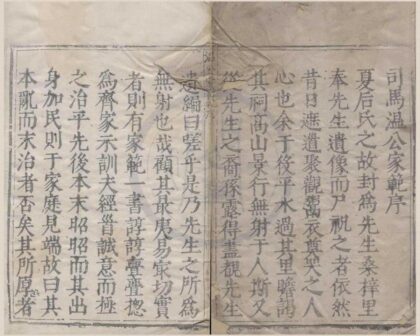 司馬溫公家範序
夏后氏之故封為先生桑梓里
奉先生遺像而尸祝之者依然
昔日遮道聚觀罷市奠哭之人
心也余于役平水過其里瞻謁
其祠高山景行無射于人斯又
從先生之裔孫露得盡覩先生
遺編曰嗟乎是乃先生之所為
無射也哉顧其最夷易最切實
者則有家範一書諄諄亹亹揔
為齊家示訓大經首誠意而極
之治平先後本末昭昭而其出
身加民則于家庭見端故曰其
本亂而末治者否矣其所厚者